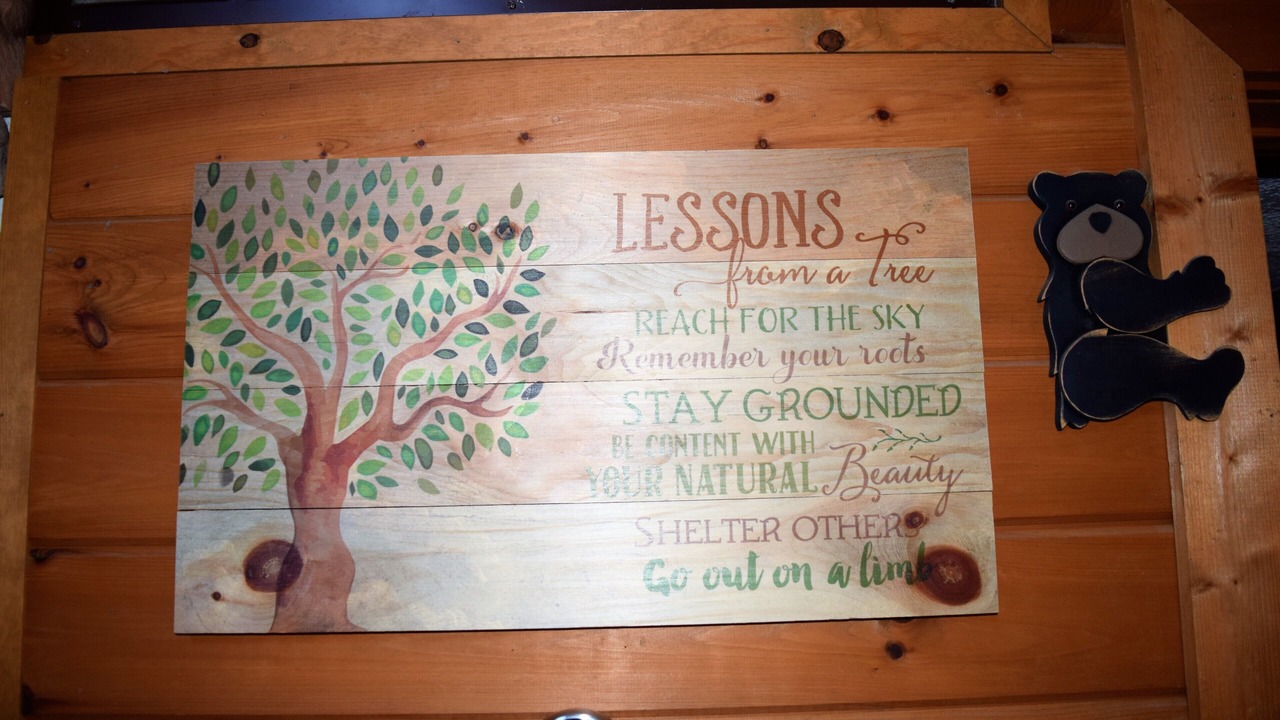 LESSONS
from a Tree
REACH FOR THE SKY
Remember your roots
STAY GROUNDED
BE CONTENT WITH
YOUR NATURAL Beauty
SHELTER OTHERS
Go out on a limb